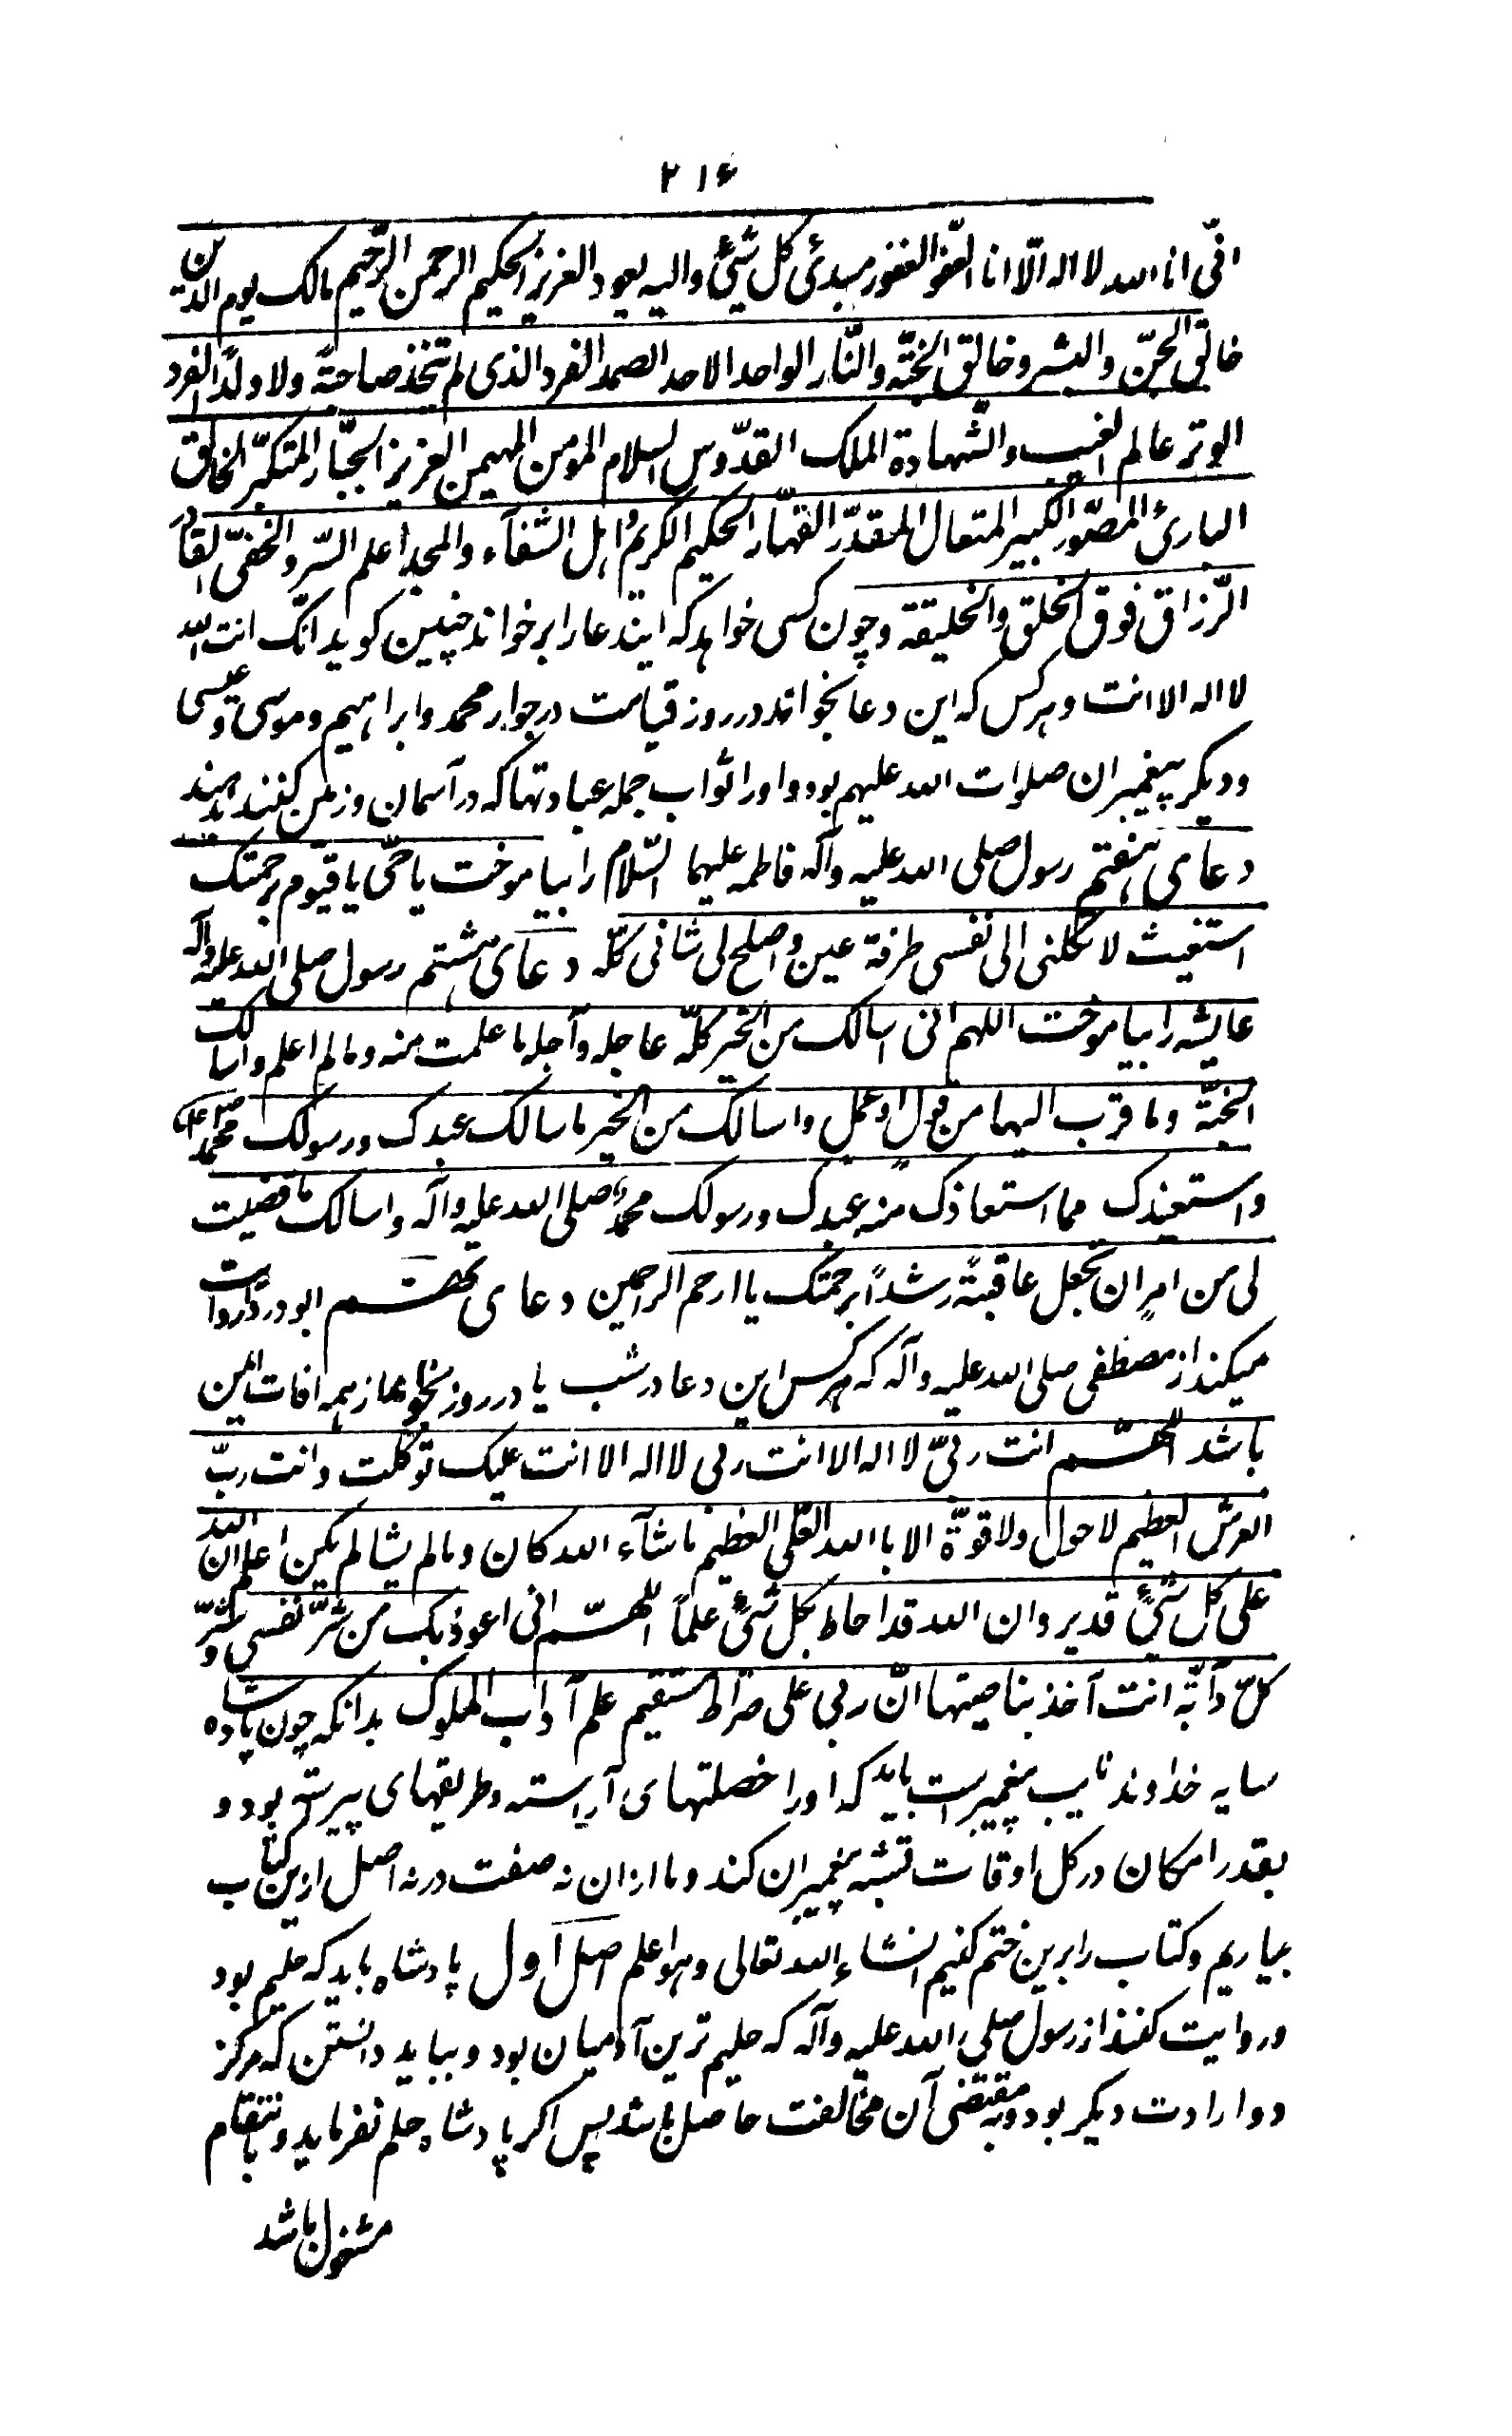 ۲۱۶
انّی انا الله لا اله الّا انا العفوّ الغفور مبدئ کل شیئ والیه یعود العزیز الحکیم الرحمن الرّحیم مالک یوم الدین
خالق الجنّ والبشر وخالق الجنّه والنّار الواحد الاحد الصمد الفرد الذی لم یتخذ صاحبة ولا ولداً الفرد
الوتر عالم الغیب والشّهادة الملک القدّوس السلام المومن المهیمن العزیز الجبّار المتکبّر الخالق
الباری المصوّر الکبیر المتعال المقتدّر القهّار الحکیم الکریم اهل الثّنآء والمجد اعلم السّر والخفیّ القادر
الرّزاق فوق الخلق والخلیقة وچون کسی خواهد که ایندعا را برخواند چنین کوید انّک انت الله
لا اله الا انت وهرکس که این دعا بخواند در روز قیامت در جوار محمد وابراهیم وموسی وعیسی
ودیکر پیغمبران صلوات الله علیهم بود واو را ثواب جمله عبادتها که در آسمان وزمین کنند بدهند
دعای هفتم رسول صلی الله علیه وآله فاطمه علیها السّلام را بیاموخت یا حیّ یا قیّوم برحمتک
استغیث لا تکلنی الی نفسی طرفة عین واصلح لی شانی کلّه دعای هشتم رسول صلی الله علیه وآله
عایشه را بیاموخت اللهم انی اسالک من الخیر کلّه عاجله وآجله ما علمت منه وما لم اعلم واسالک
الجنّة وما قرب الیها من قول او عمل واسالک من الخیر ما سالک عبدک ورسولک محمد ص
واستعیذک مما استعاذک منه عبدک ورسولک محمد صلی الله علیه وآله واسالک ما قضیت
لی من امر ان تجعل عاقبتة رشداً برحمتک یا ارحم الراحمین دعای نهم ابو دردا روایت
میکند از مصطفی صلی الله علیه وآله که هرکس این دعا در شب یا در روز بخواند از همه افات ایمن
باشد اللهم انت ربیّ لا اله الا انت ربی لا اله الا انت علیک توکلت وانت ربّ
العرش العظیم لا حول ولا قوّة الا باالله العلی العظیم ماشآء الله کان وما لم یشا لم یکن اعلم ان الله
علی کل شیئ قدیر وان الله قد احاط بکل شیئ علماً اللهم انی اعوذ بک من شرّ نفسی وشرّ
کل دآبّة انت آخذ بناصیتها انّ ربی علی صراط مستقیم علم آداب الملوک بدانکه چون پادشاه
سایه خداوند نایب پیغمبر است باید که او را خصلتهای آراسته وطریقهای پیرسته بود و
بقدر امکان در کل اوقات تشبّه پیغمبران کند وما ازان نه صفت در نه اصل ازین کتاب
بیاریم وکتاب را برین ختم کنیم انشاء الله تعالی وهو اعلم اصل اول پادشاه باید که حلیم بود
وروایت کنند از رسول صلی الله علیه وآله که حلیم ترین آدمیان بود وبباید دانستن که هرکز
دو ارادت دیکر بود وبمقتضی آن مخالفت حاصل باشد پس اکر پادشاه حلم نفرماید وبانتقام
مشغول باشد